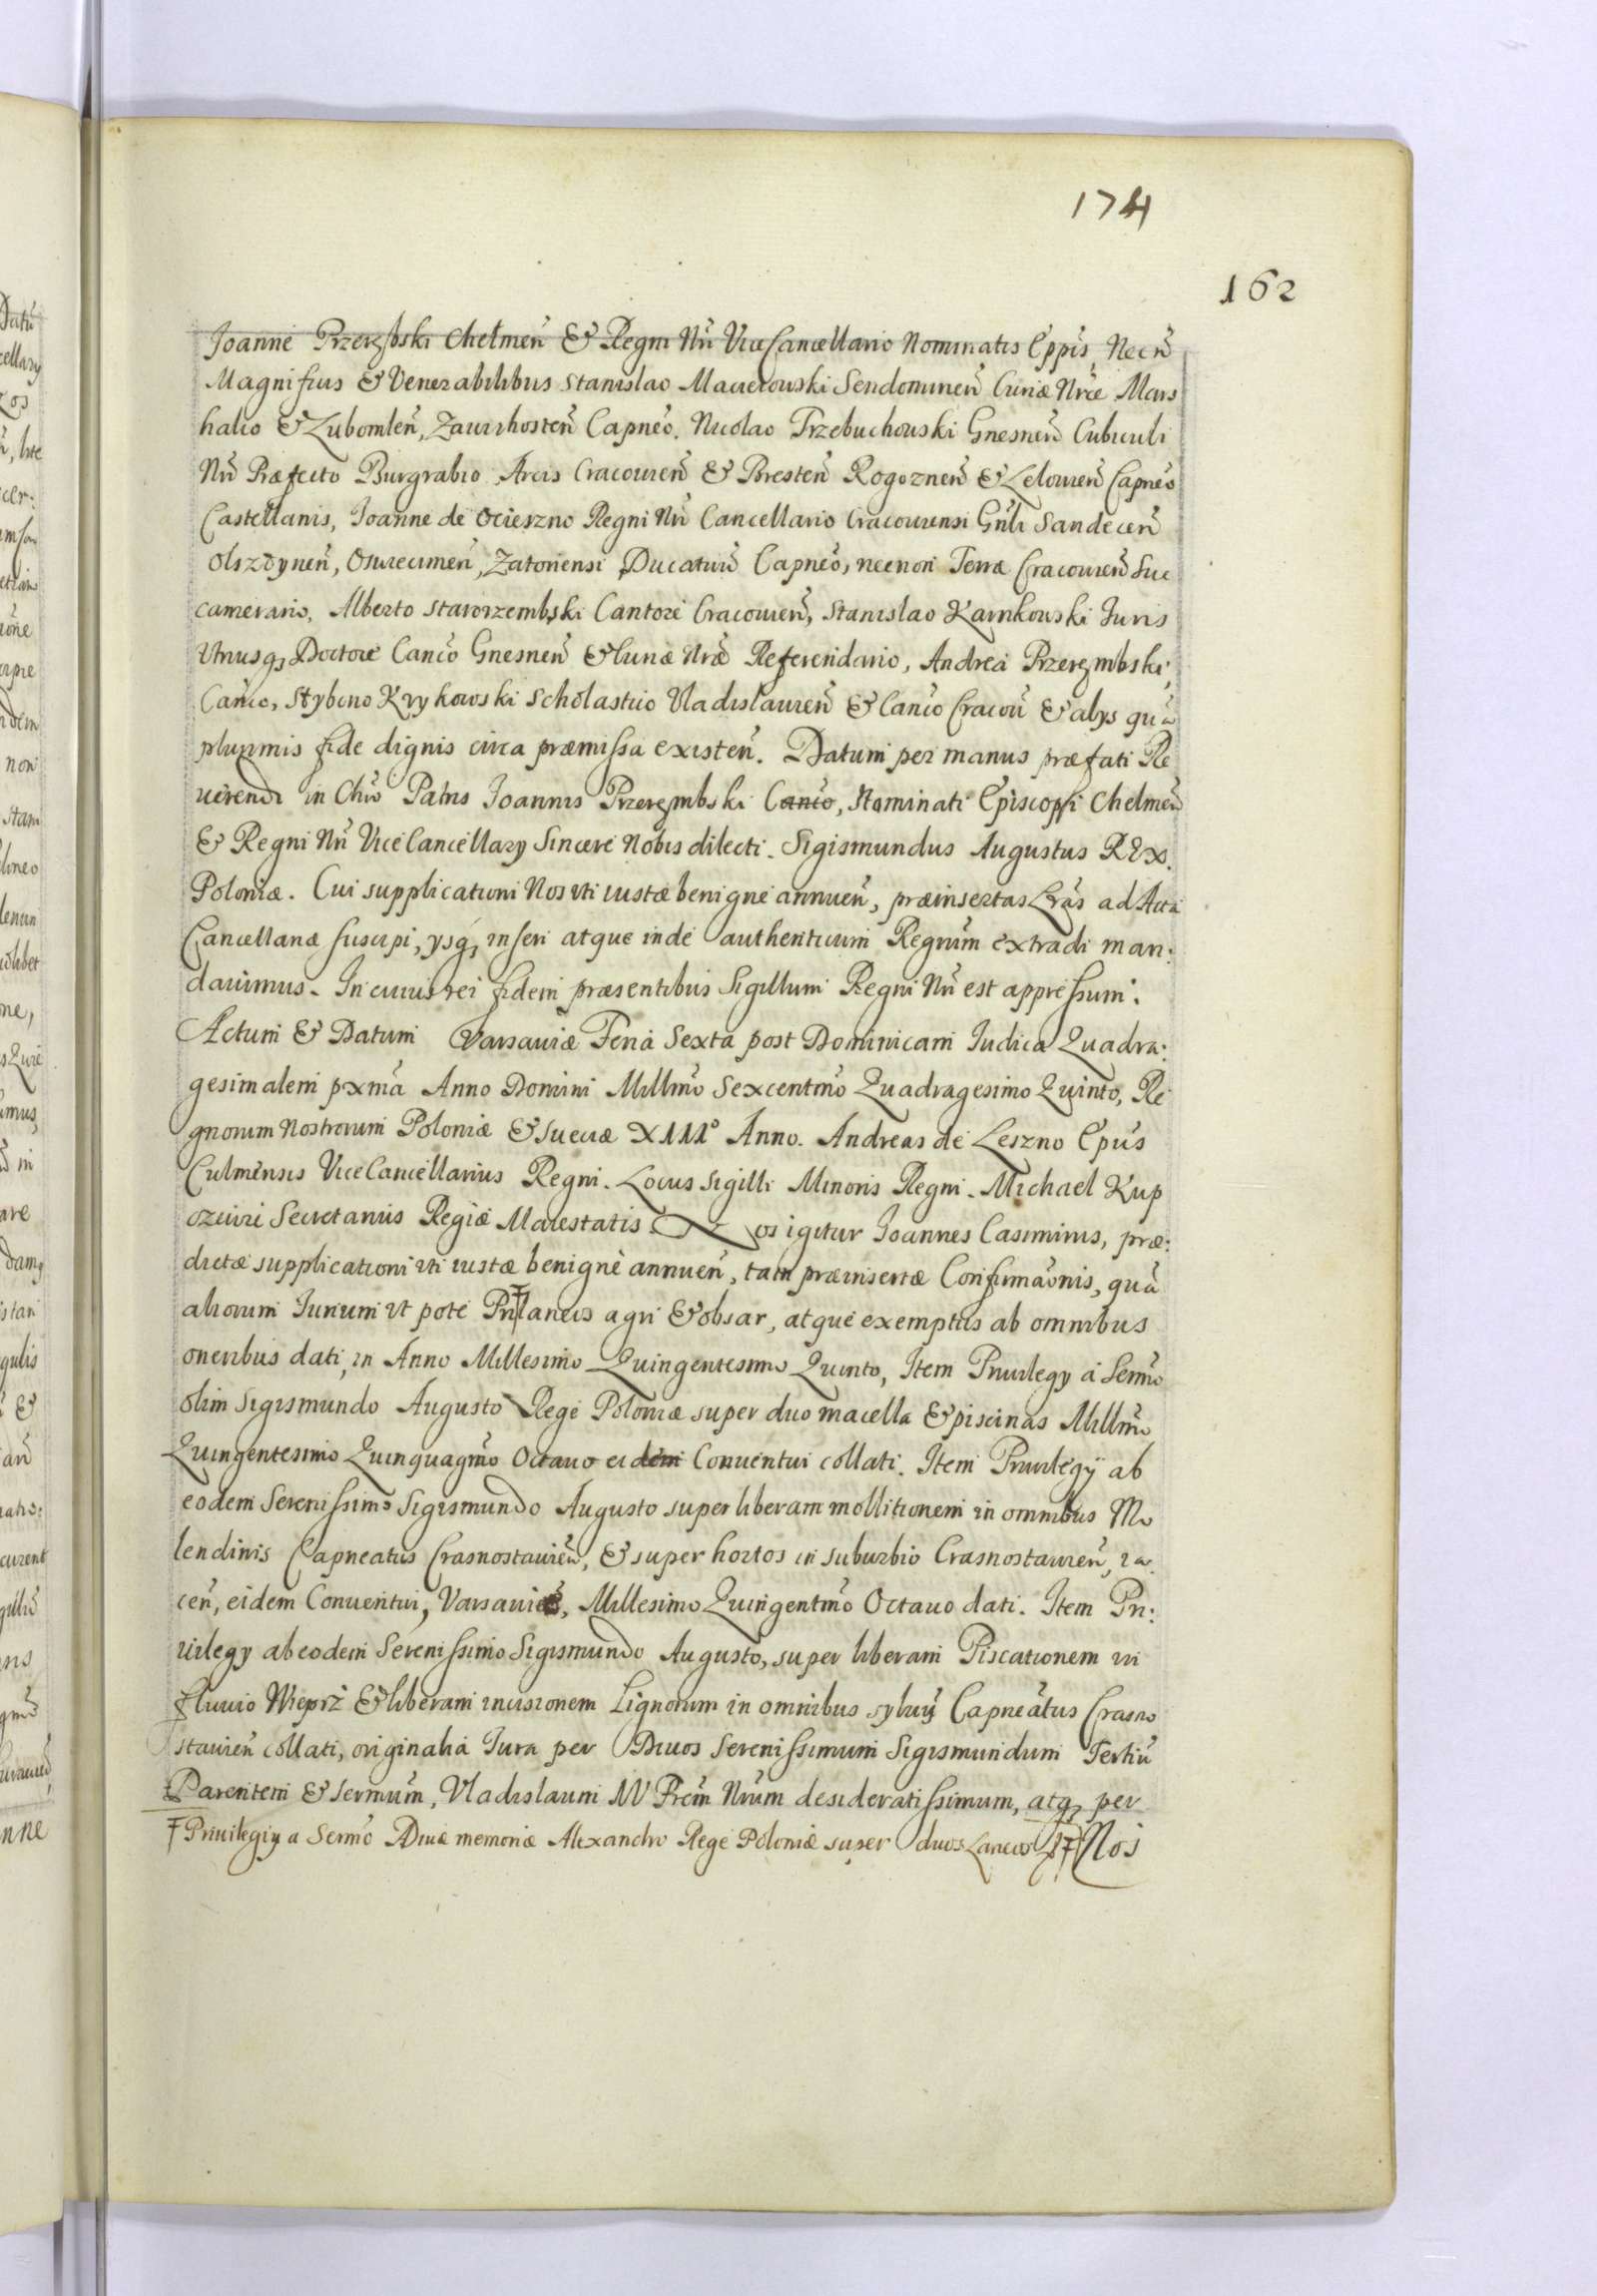 174
162
Joanne Przerębski Chelmen̄ & Regni Nr̄i ViceCancellario Nominatis Ep̄pis, Necn̄
Magnificis & Venerabilibus Stanislao Macieiowski Sendomirien̄ Curiæ Nr̄æ Mars
halco & Lubomlen̄, Zawichosten̄ Capneo. Nicolao Trzebuchowski Gnesnen̄ Cubiculi
Nr̄i Præfecto Burgrabio Arcis Cracouien̄ & Bresten̄ Rogoznen̄ & Lelouien̄ Capneo
Castellanis, Joanne de Ocieszno Regni Nr̄i Cancellario Cracouiensi Gn̄li Sandecen̄
Olsztynen̄, Osuiecimen̄, Zatoriensi Ducatuū Capneo, necnon Terræ Cracouien̄ Suc
camerario, Alberto Starorzembski Cantore Cracouien̄, Stanislao Karnkowski Juris
Vtriusq, Doctore Canco Gnesnen̄ & Curiæ Nræ Referendario, Andrea Przerembski,
Canco, Stybcno Krykowski Scholastico Vladislauien̄ & Canco Cracou̅ & alys quā
plurimis fide dignis circa præmissa existen̄. Datum per manus præfati Re
uerendi in Chr̄o Patris Joannis Przerembski Canco, Nominati Episcopi Chelmen̄
& Regni Nr̄i ViceCancellary Sincere Nobis dilecti. Sigismundus Augustus REX
Poloniæ. Cui supplicationi Nos vti iustæ benigne annuen̄, præinsertas Lr̄as ad Acta
Cancellariæ suscipi, ysq, inseri atque inde authenticum Regnum extradi man:
dauimus. In cuius rei fidem præsentibus Sigillum Regni Nr̄i est appressum.
Actum & Datum Varsauiæ Feria Sexta post Dominicam Judica Quadra:
gesimalem pxmā Anno Domini Millm̄o Sexcentm̄o Quadragesimo Quinto, Re
gnorum Nostrorum Poloniæ & Sueciæ XIII° Anno. Andreas de Leszno Ep̄us
Culmensis ViceCancellarius Regni. Locus Sigilli Minoris Regni. Michael Kup
ozewi Secretarius Regiæ Maiestatis. Nos igitur Joannes Casimirus, præ:
dictæ supplicationi vti iustæ benignè annuen̄, tam præinsertæ Confirmāonis, quā
aliorum Jurium vt pote Pri laneis agri & obsar, atque exemptis ab omnibus
oneribus dati, in Anno Millesimo Quingentesimo Quinto, Item Priuilegy á Serm̄o
olim Sigismundo Augusto Rege Poloniæ super duo macella & piscinas Millm̄o
Quingentesimo Quinquagm̄o Octauo eidem Conuentui collati. Item Priuilegÿ ab
eodem Serenissimo Sigismundo Augusto super liberam mollitionem in omnibus Mo
lendinis Capneatus Crasnostauien̄, & super hortos in suburbio Crasnostauien̄, ia
cen̄, eidem Conuentui, Varsauiæ, Millesimo Quingentm̄o Octauo dati. Item Pri:
uilegy ab eodem Serenissimo Sigismundo Augusto, super liberam Piscationem in
fluuio Wieprz & liberam incisionem Lignorum in omnibus syluÿ Capneātus Crasno
stauien̄ collati, originalia Jura per Diuos Serenissimum Sigismundum Tertiū
Parentem & Sermum, Vladislaum IV Frēm Nrum desideratissimum, atq, per
Ŧ Priuilegiy a Serm̄o Diuæ memoriæ Alexandro Rege Poloniæ super duos Laneos Ŧ Nos